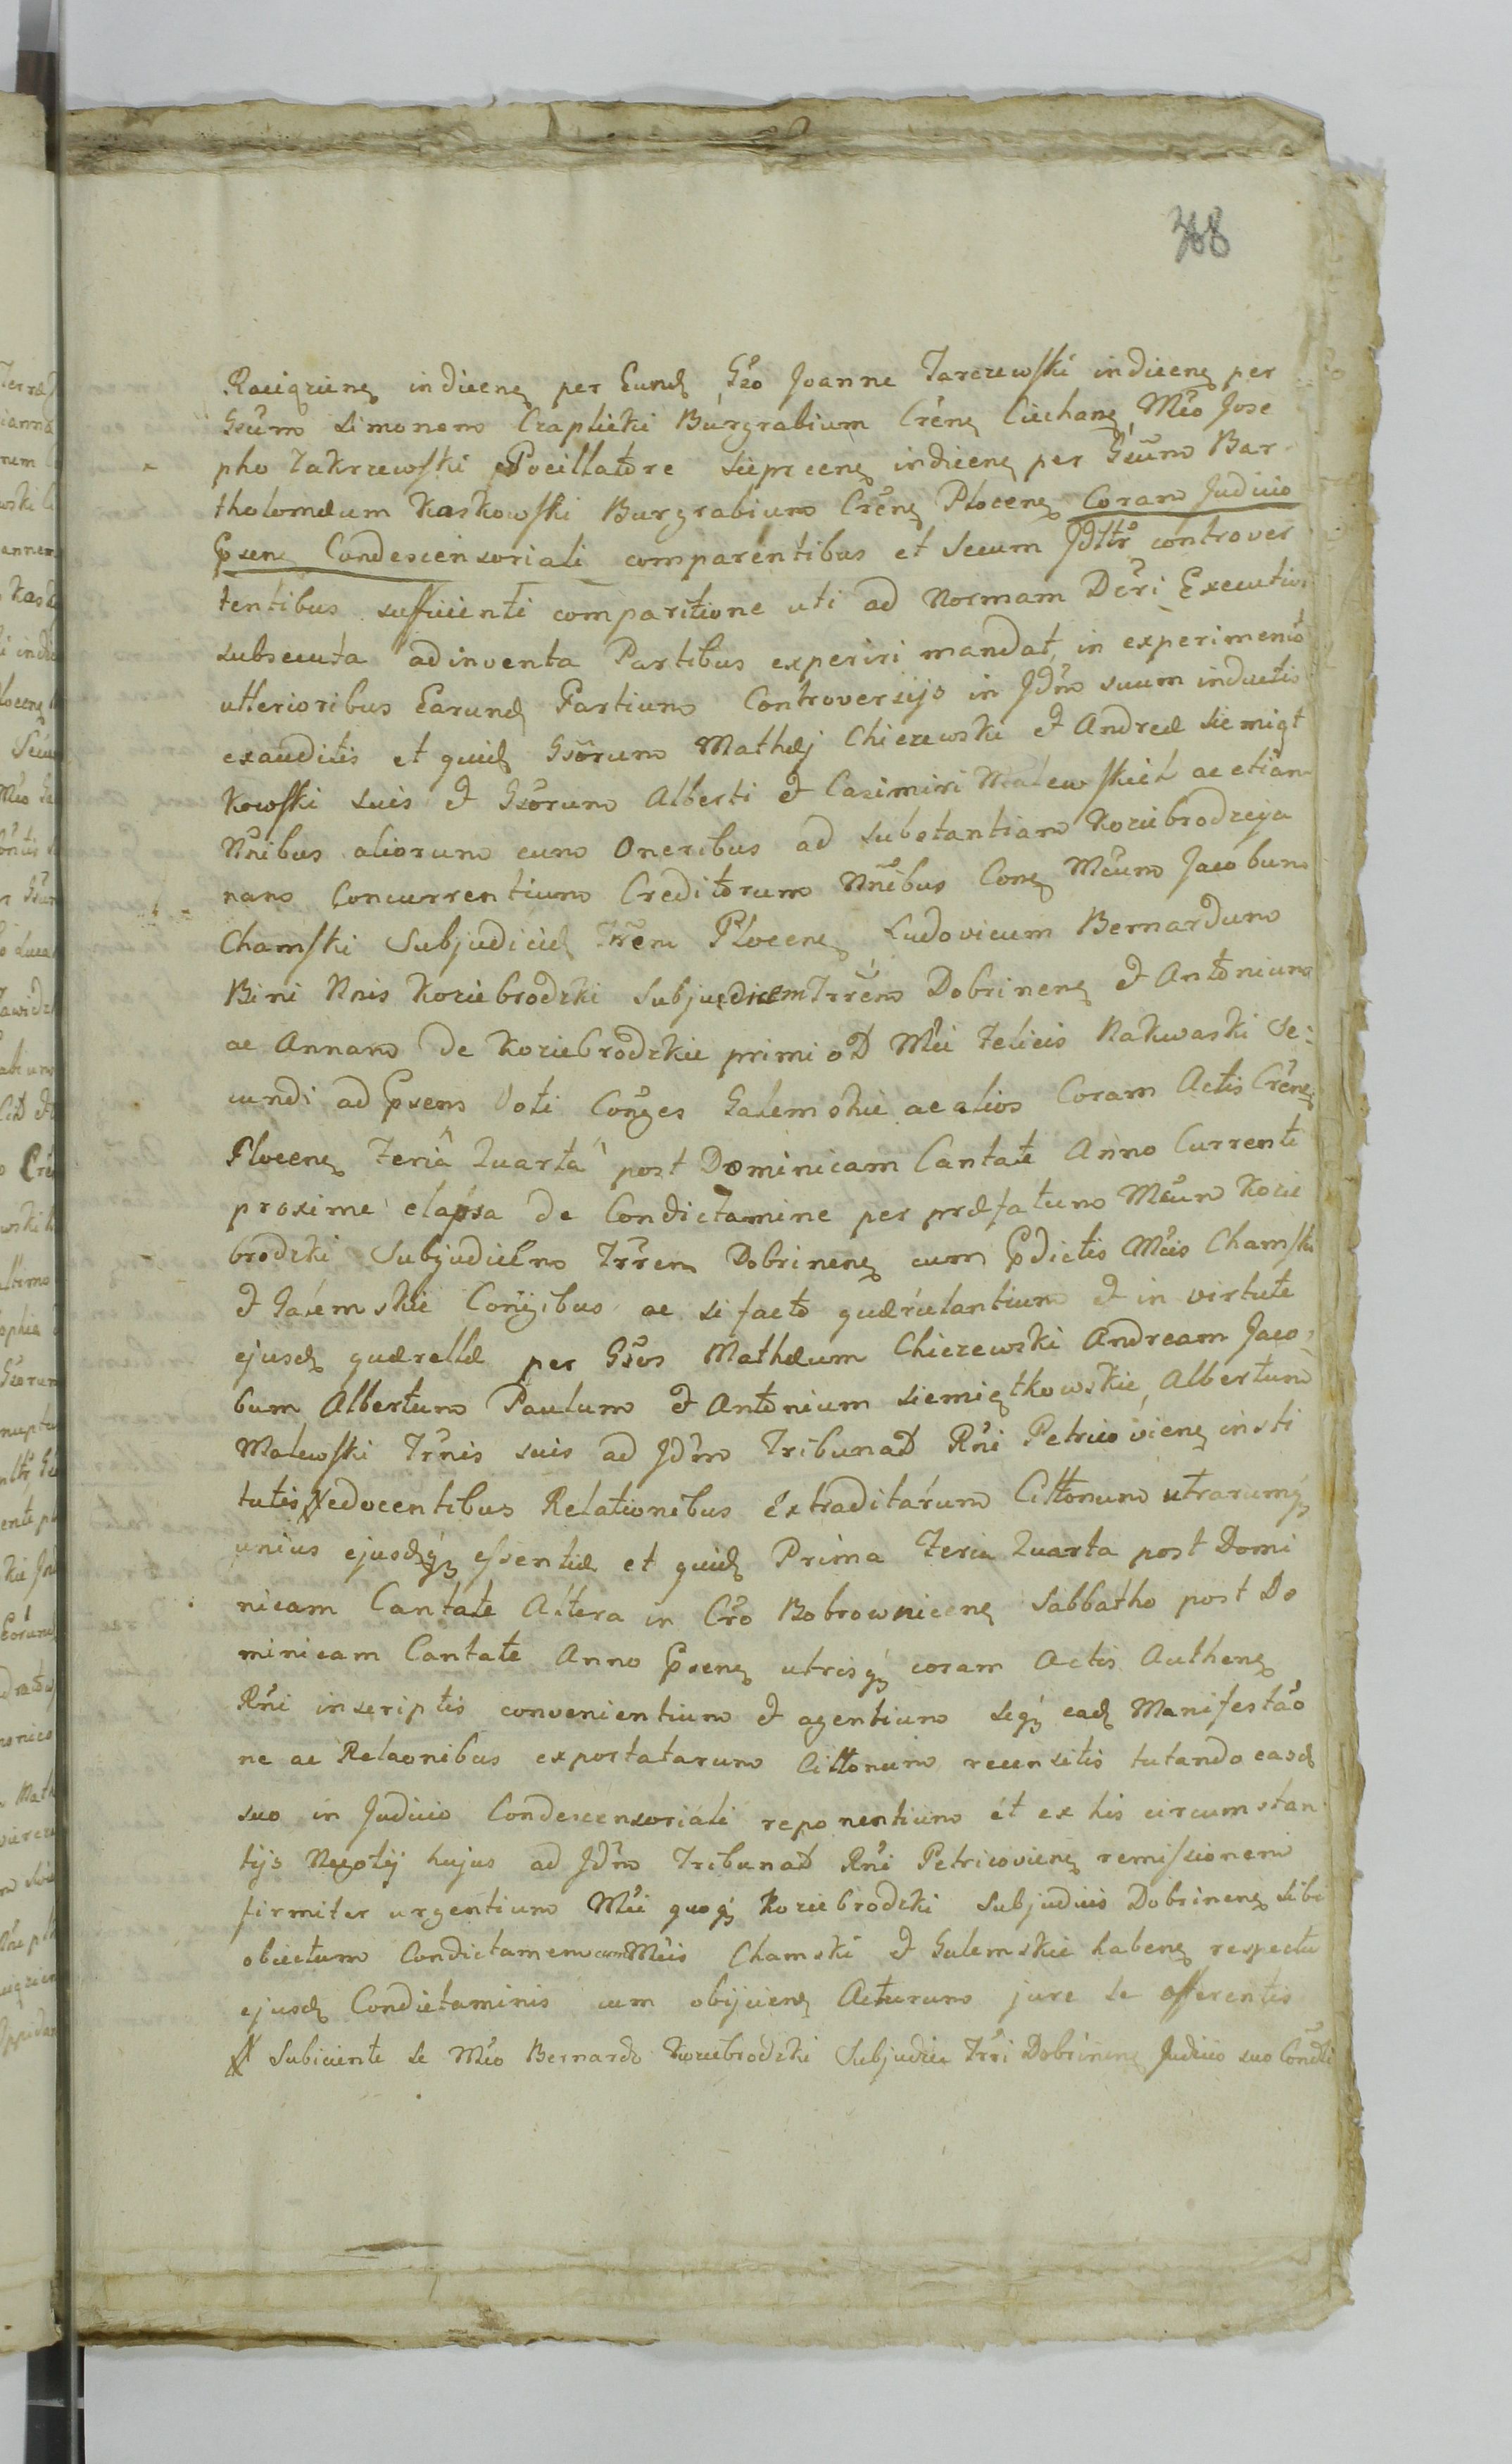 368
Raciązienę indicenę per Eundę Gso Joanne Tarczewski indicenę per
Gsum Simonem Czaplicki Burgrabium Crenę Ciechanę Mco Jose
pho Zakrzewski Pocillatore Sieprcenę indicenę per Gsum Bar
tholomæum Kaskowski Burgrabium Crenę Plocenę Coram Judicio
Psenę Condescensoriali comparentibus et secum Jdltr controver
tentibus sufficienti comparitione uti ad Normam Dcri Executivi
subsecuta adinventa Partibus experiri mandat, in experimento
ulterioribus Earundę Partium Controversijs in Jdm suum inductis
exauditis et quidę Gsorum Mathæj Chiczewski et Andreæ Siemiąt
kowski suis et Gsorum Alberti et Casimiri Malewskich ac etiam
Nnibus aliorum cum Oneribus ad substantiam Koziebrodzcja
nam Concurrentium Creditorum Nnibus Conę Mcum Jacobum
Chamski Subjudicię Trrem Plocenę Ludovicum Bernardum
Bini Nnis Koziebrodzki Subjudicem Trrem Dobrinenę et Antonium
ac Annam de Koziebrodzkie primi oD Mci Felicis Nakwaski Se:
cundi ad Psens Voti Coñges Galemskie ac alios Coram Actis Crenę
Plocenę Feriâ Quartâ post Dominicam Cantate Anno Currenti
proxime elapsa de Condictamine per præfatum Mcum Kozie
brodzki Subjudicem Trrem Dobrinenę cum Pdictis Mcis Chamski
et Galemskie Coñgibus ac si facto quærulantium et in virtute
ejusdę quærellæ per Gsos Mathæum Chiczewski Andream Jaco
bum Albertum Paulum et Antonium Siemiątkowskie, Albertum
Malewski Trnis suis ad Jdm Tribunal Rni Petricovienę insti
tutis edocentibus Relationibus Extraditarum Citłonum utrarumq
unius ejusdęq essentiæ et quidę Prima Feria Quarta post Domi
nicam Cantate Altera in Cro Bobrownicenę Sabbatho post Do
minicam Cantate Anno Psenę utrisq coram Actis Authenę
Rni inscriptis convenientium et agentium seq eadę Manifestao
ne ac Relaonibus exportatarum Citłonum recensitis tutando easdę
suo in Judicio Condescensoriali reponentium et ex his circumstan
tijs Negotij hujus ad Jdm Tribunal Rni Petricovienę remissionem
firmiter urgentium Mci quoq Koziebrodzki Subjudicis Dobrinenę sibi
obiectum Condictamen cum Mcis Chamski et Galemskie habenę respectu
ejusdę Condictaminis cum obijcienę Acturum jure se offerentis
Subiciente se Mco Bernardo Koziebrodzki Subjudice Trri Dobrinenę Judicio suo Condti